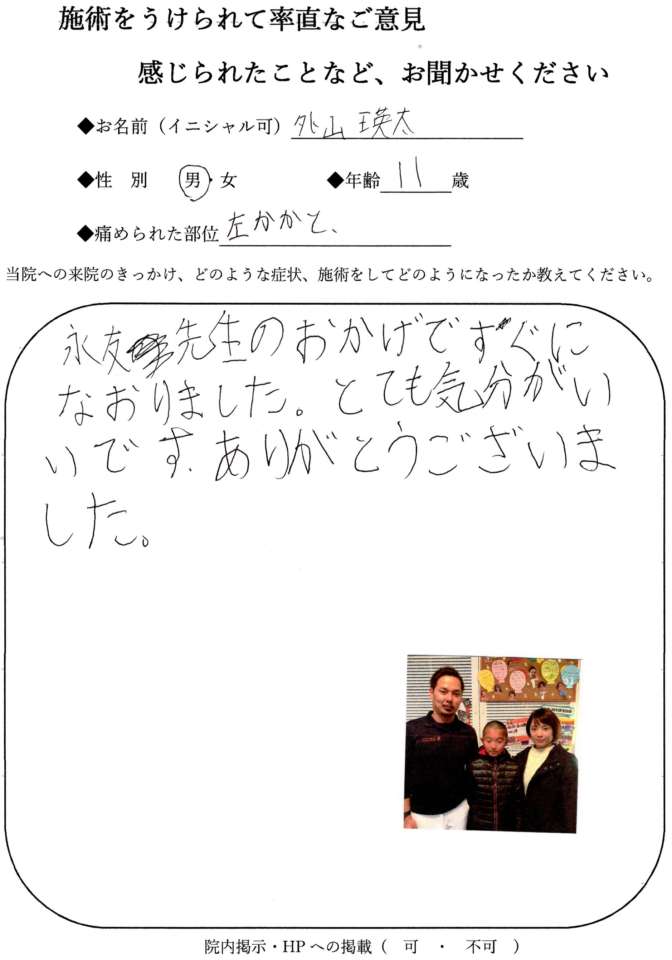 施術をうけられて率直なご意見
感じられたことなど、お聞かせください
◆お名前（イニシャル可）外山 瑛太
◆性　別　男・女　◆年齢 11 歳
◆痛められた部位 左かかと、
当院への来院のきっかけ、どのような症状、施術をしてどのようになったか教えてください。
永友先生のおかげですぐに
なおりました。とても気分がい
いです。ありがとうございま
した。
院内掲示・HPへの掲載（　可　・　不可　）